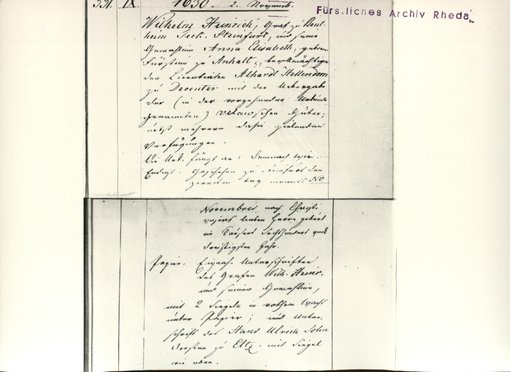 551. IX. 1630. 2. Novemb.
Fürstliches Archiv Rheda
Wilhelm Heinrich, Graf zu Bent-
heim Teck. Steinfurt, und seine
Gemahlin Anna Elisabeth, geborne
Fürstin zu Anhalt, bevollmächtigen
den Licentiaten Alhardt
zu Deventer mit der Uebergabe
der (in der vorgehenden Urkunde
genannten) Güter;
nebst mehrern dahin zielenden
Verfügungen.
Die Urk. fängt an: Demnach wir
Endigt: Geschehen zu den
zweiten Tag monats No
Novembris nach Christi
unsers lieben Herrn geburt
im Tausent Sechshundert und
dreissigsten Jahr.
Papier. Eigenh. Unterschriften
des Grafen Wilh. Heinr.
und seiner Gemahlin,
mit 2 Siegeln in rothem Wachs
unter Papier; und Unter-
schrift des Hans Ulrich
zu mit Siegel
wie oben.